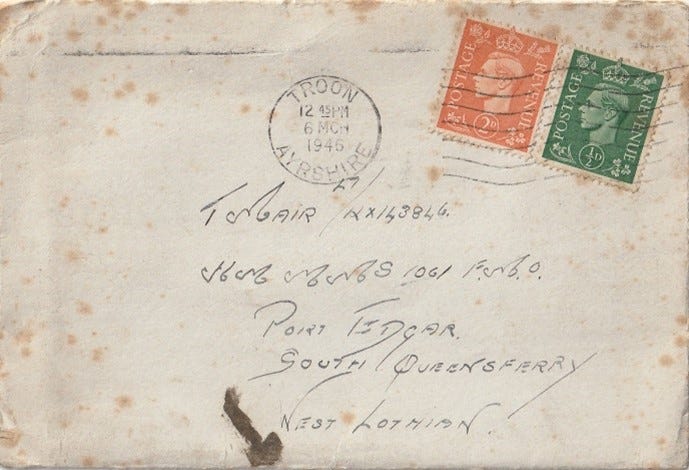 POSTAGE REVENUE
2D
POSTAGE REVENUE
½D
TROON
12 45PM
6 MCH
1946
AYRSHIRE
KX143846.
1061
PORT EDGAR.
SOUTH QUEENSFERRY
WEST LOTHIAN.